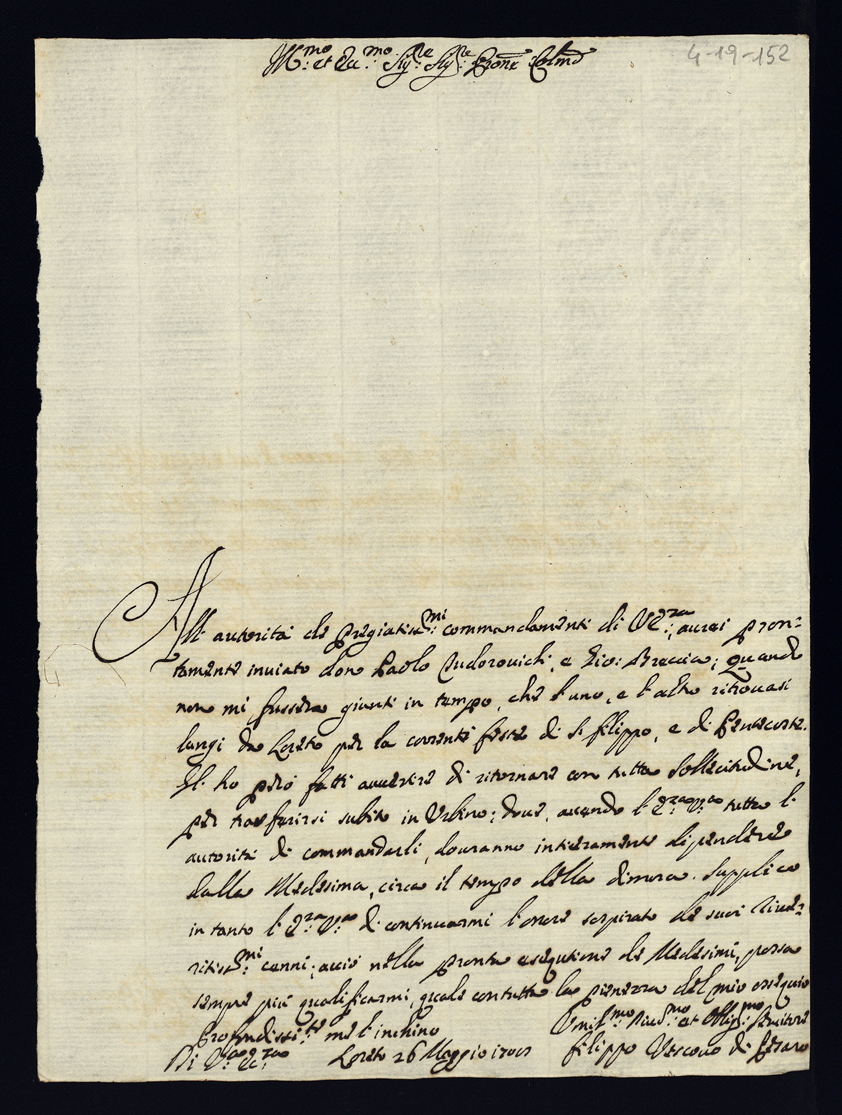 Ill:mo et Ecc:mo Sig:re Sig:re Prone Colmo
4-19-152
All' autorità de pregiatiss:mi commandamenti di VE:za, aurei pron=
tamente inuiato don Paolo, e Gio: Breccia; quando
non mi fussero giunti in tempo, che l'uno, e l'altro ritrouasi
lungi da Loreto per la corrente feste di S. filippo, e di Pentecoste.
Gl' ho però fatti auuertire di ritornare con tutta sollecitudine,
per trasferirsi subito in Urbino; doue, auendo l'E:za V:ra tutta l'
autorità di commandarli, douranno intieramente dipendere
dalla Medesima, circa il tempo della dimora. Supplico
in tanto l'E:za V:ra di continuarmi l'onore sospirato de suoi riue=
ritiss:mi cenni; acciò nella pronta esequtione de Medesimi, possa
sempre più qualificarmi, quale con tutta la pienezza del mio ossequio
profondissi:te me l'inchino
Di V:ra E:za Loreto 26 Maggio
Umil:mo Diu:mo et Obligs:mo Seruitore
filippo Vescouo di Pesaro